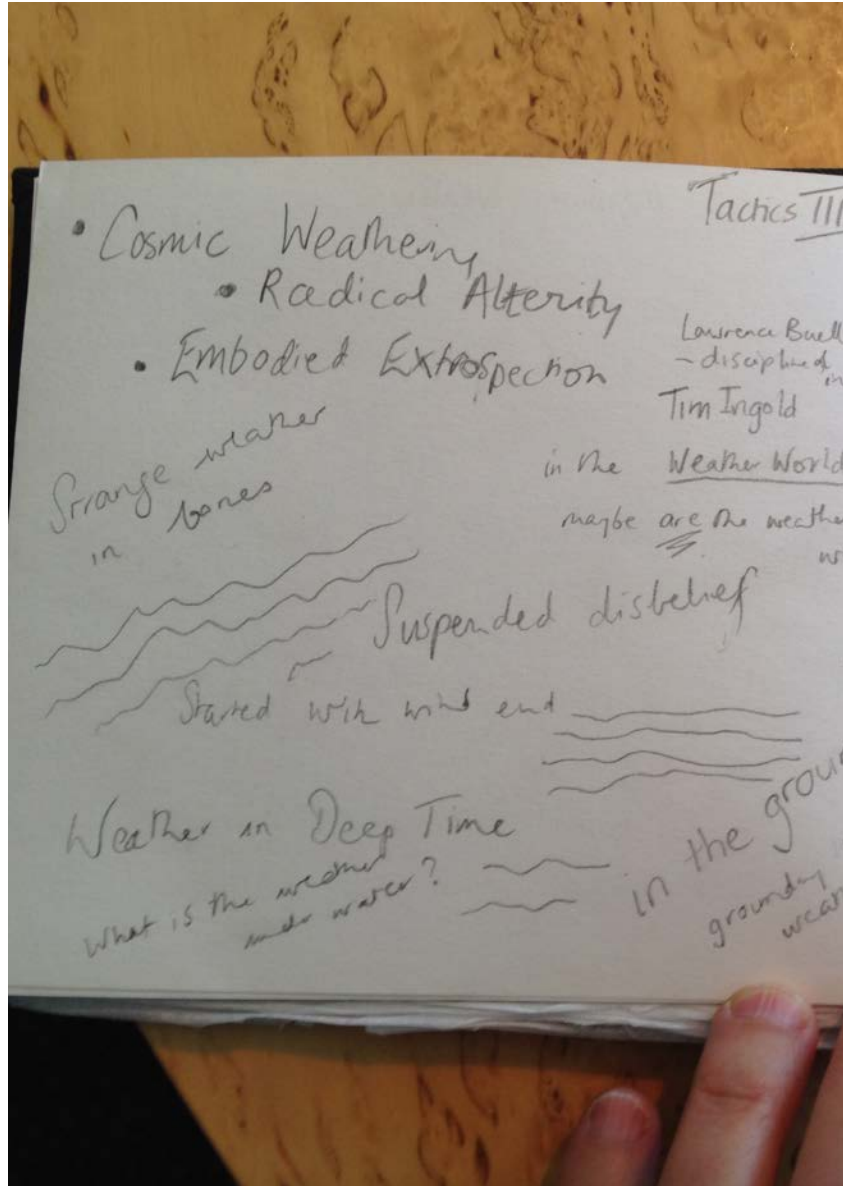 Tactics III
• Cosmic Weathering
• Radical Alterity
• Embodied Extrospection
Lawrence Buell
– discipline of in
Tim Ingold
in the Weather World
maybe are the weather
Strange weather
in bones
Suspended disbelief
Started with wind end
Weather in Deep Time
What is the weather
under water?
in the groun
grounding
wea